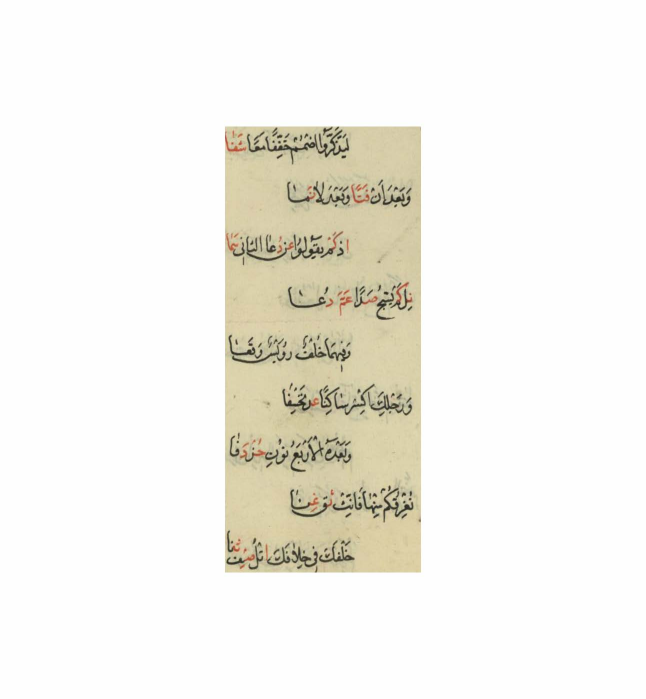 لِيَذَّكَّرُوا اضْمُمْ خَفِّفًا مَعًا شَفَا
وَبَعْدَ أَنْ فَتًا وَبَعْدَ لا نَمَا
اذ كَمْ يَقُولُوا عَنْ دُعا الثانِى سَمَا
نِلْ كَمْ يُسَبِّحُ صَدًا عَمَّ دُعَا
وَفِيهِمَا خُلْفُ رُوَيْسٍ وَقَعَا
وَرَجْلِكَ اكْسِرْ سَاكِنًا عُدْ نَخْسِفَا
وَبَعْدَهُ الأَرْبَعُ نُونٌ حُزْ دَفَا
نُغْرِقَكُمْ مِنْهَا فَأَنِّثْ ثِقْ غِنَا
خَلْفَكَ فِى خِلافَكَ اتْلُ صِفْ ثَنَا